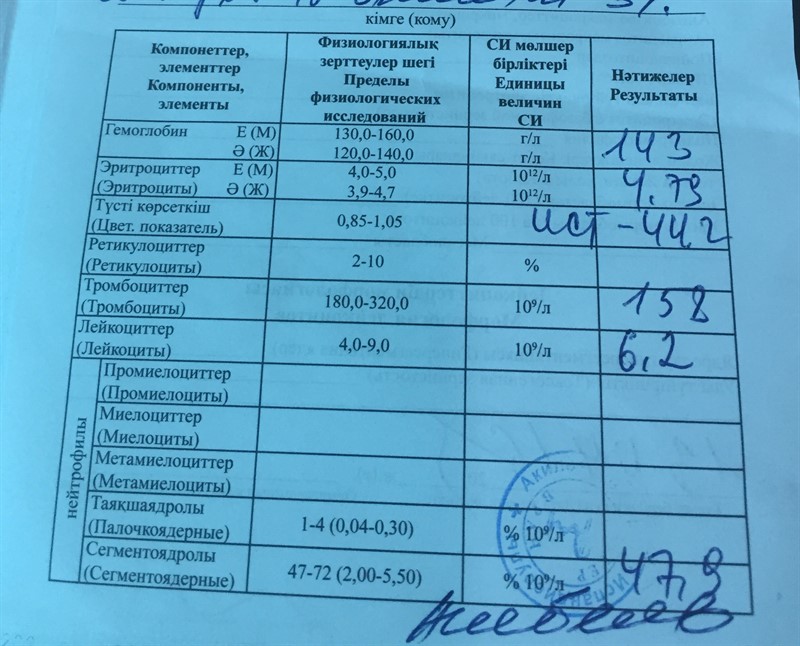 кімге (кому)
Компонеттер, элементтер Компоненты, элементы
Физиологиялық зерттеулер шегі Пределы физиологических исследований
СИ мөлшер бірліктері Единицы величин СИ
Нәтижелер Результаты
Гемоглобин Е (М) 130,0-160,0 г/л 143
Ә (Ж) 120,0-140,0 г/л
Эритроциттер Е (М) 4,0-5,0 10¹²/л 4.79
(Эритроциты) Ә (Ж) 3,9-4,7 10¹²/л
Түсті көрсеткіш
(Цвет. показатель) 0,85-1,05 НСТ - 44,2
Ретикулоциттер
(Ретикулоциты) 2-10 %
Тромбоциттер
(Тромбоциты) 180,0-320,0 10⁹/л 158
Лейкоциттер
(Лейкоциты) 4,0-9,0 10⁹/л 6,2
нейтрофилы
Промиелоциттер
(Промиелоциты)
Миелоциттер
(Миелоциты)
Метамиелоциттер
(Метамиелоциты)
Таяқшаядролы
(Палочкоядерные) 1-4 (0,04-0,30) % 10⁹/л
Сегментоядролы
(Сегментоядерные) 47-72 (2,00-5,50) % 10⁹/л 47,9